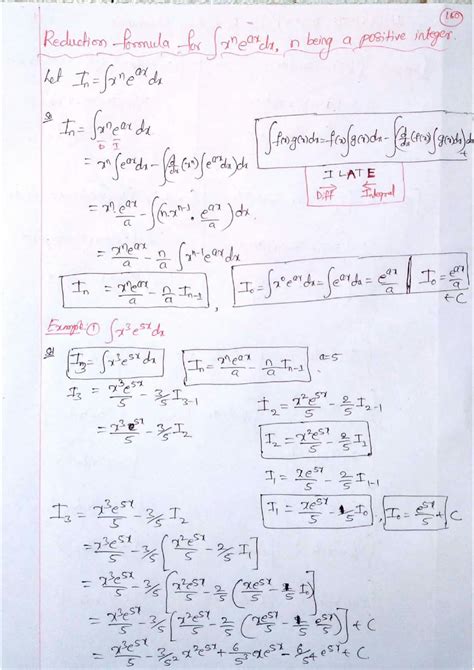 160
Reduction formula for ∫xⁿeᵃˣdx, n being a positive integer.
Let Iₙ = ∫xⁿeᵃˣdx
Iₙ = ∫xⁿeᵃˣ dx
D I
∫f(x)g(x)dx = f(x)∫g(x)dx - ∫(d/dx(f(x))∫g(x)dx)dx
= xⁿ∫eᵃˣdx - ∫(d/dx(xⁿ)∫eᵃˣdx)dx
I LATE
Diff Integral
= xⁿeᵃˣ/a - ∫(n.xⁿ⁻¹ . eᵃˣ/a)dx.
= xⁿeᵃˣ/a - n/a ∫xⁿ⁻¹eᵃˣdx
Iₙ = xⁿeᵃˣ/a - n/a Iₙ₋₁ , I₀ = ∫x⁰eᵃˣdx = ∫eᵃˣdx = eᵃˣ/a I₀ = eᵃˣ/a + C
Example ① ∫x³e⁵ˣdx
I₃ = ∫x³e⁵ˣdx Iₙ = xⁿeᵃˣ/a - n/a Iₙ₋₁ . a=5
I₃ = x³e⁵ˣ/5 - 3/5 I₃₋₁
= x³e⁵ˣ/5 - 3/5 I₂
I₂ = x²e⁵ˣ/5 - 2/5 I₂₋₁
I₂ = x²e⁵ˣ/5 - 2/5 I₁
I₁ = xe⁵ˣ/5 - 2/5 I₁₋₁
I₁ = xe⁵ˣ/5 - 1/5 I₀ , I₀ = e⁵ˣ/5 + C
I₃ = x³e⁵ˣ/5 - 3/5 I₂
= x³e⁵ˣ/5 - 3/5 [x²e⁵ˣ/5 - 2/5 I₁]
= x³e⁵ˣ/5 - 3/5 [x²e⁵ˣ/5 - 2/5 (xe⁵ˣ/5 - 1/5 I₀)]
= x³e⁵ˣ/5 - 3/5 [x²e⁵ˣ/5 - 2/5 (xe⁵ˣ/5 - 1/5 e⁵ˣ/5)] + C
= x³e⁵ˣ/5 - 3/5² x²e⁵ˣ + 6/5³ xe⁵ˣ - 6/5⁴ e⁵ˣ + C